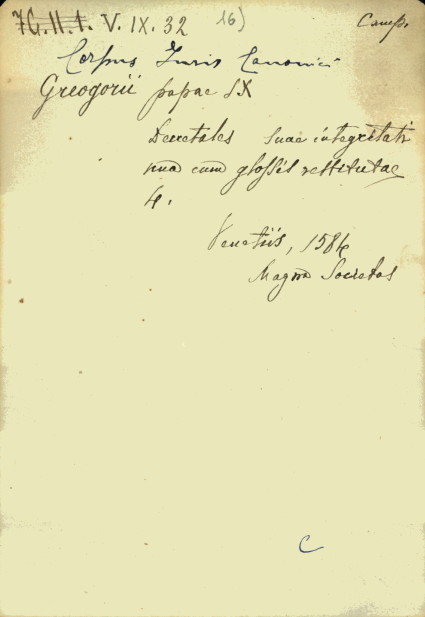 7G.II.1. V. IX. 32 16) Camp.
Corpus Iuris Canonici
Greogorii papae IX
Decretales suae integritati
una cum glossis restitutae
4.
Venetiis, 1584
Magna Societas
C